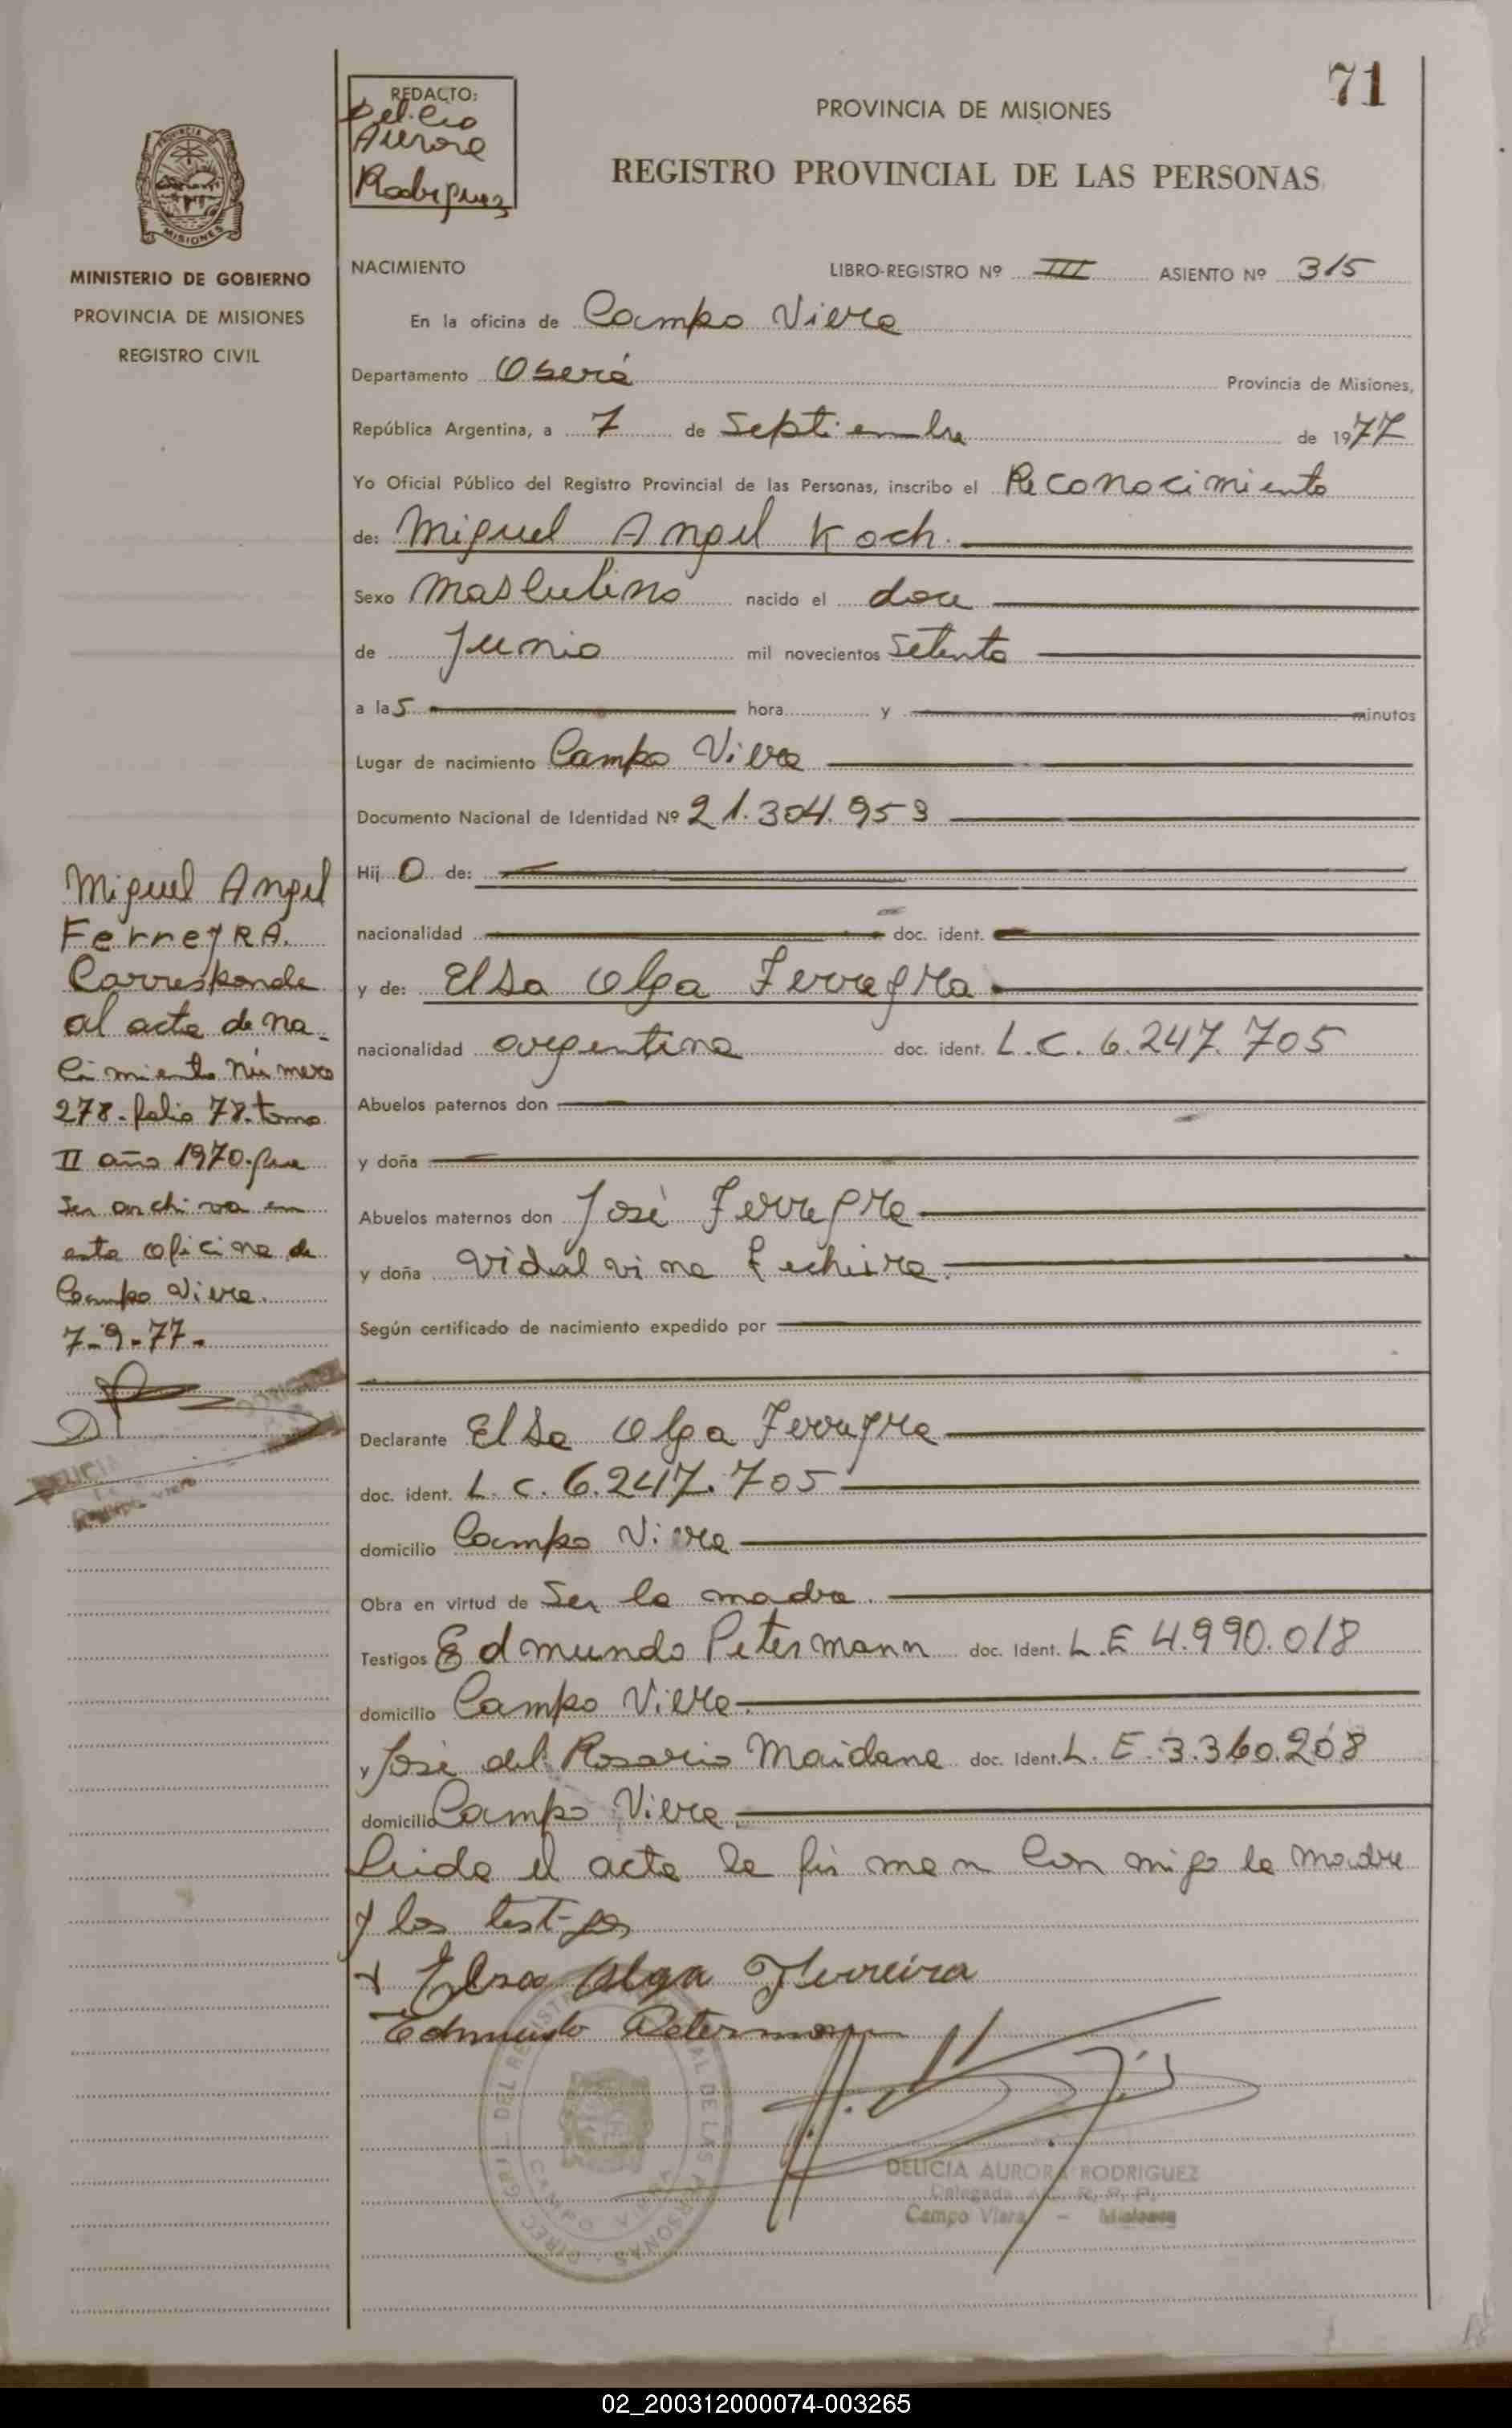 71
REDACTO:
Delicia
Aurora
Rodriguez
PROVINCIA DE MISIONES
REGISTRO PROVINCIAL DE LAS PERSONAS
MISIONES
MINISTERIO DE GOBIERNO
PROVINCIA DE MISIONES
REGISTRO CIVIL
NACIMIENTO LIBRO-REGISTRO Nº III ASIENTO Nº 315
En la oficina de Campo Viera
Departamento Oberá Provincia de Misiones,
República Argentina, a 7 de Septiembre de 1977
Yo Oficial Público del Registro Provincial de las Personas, inscribo el Reconocimiento
de: Miguel Angel Koch.
Sexo masculino nacido el doce
de Junio mil novecientos Setenta
a la 5 hora y minutos
Lugar de nacimiento Campo Viera
Documento Nacional de Identidad Nº 21.304.953
Hij O de:
nacionalidad doc. ident.
y de: Elsa Olga Ferreyra
nacionalidad argentina doc. ident. L.C. 6.247.705
Abuelos paternos don
y doña
Abuelos maternos don José Ferreyra
y doña Vidalvina
Según certificado de nacimiento expedido por
Declarante Elsa Olga Ferreyra
doc. ident. L.C. 6.247.705
domicilio Campo Viera
Obra en virtud de Ser la madre.
Testigos Edmundo Petermann doc. Ident. L.E 4.990.018
domicilio Campo Viera.
y José del Rosario Maidana doc. Ident. L.E. 3.360.208
domicilio Campo Viera
Leida el acta la firman conmigo la madre
y los testigos
Elsa Olga Ferreira
Edmundo Petermann
DELICIA AURORA RODRIGUEZ
Delegada R. P. P.
Campo Viera - Misiones
Miguel Angel
FerreyRA.
Corresponde
al acta de na-
cimiento número
278-folio 78-tomo
II año 1970-que
se archiva en
esta oficina de
Campo Viera.
7-9-77-
02_200312000074-003265